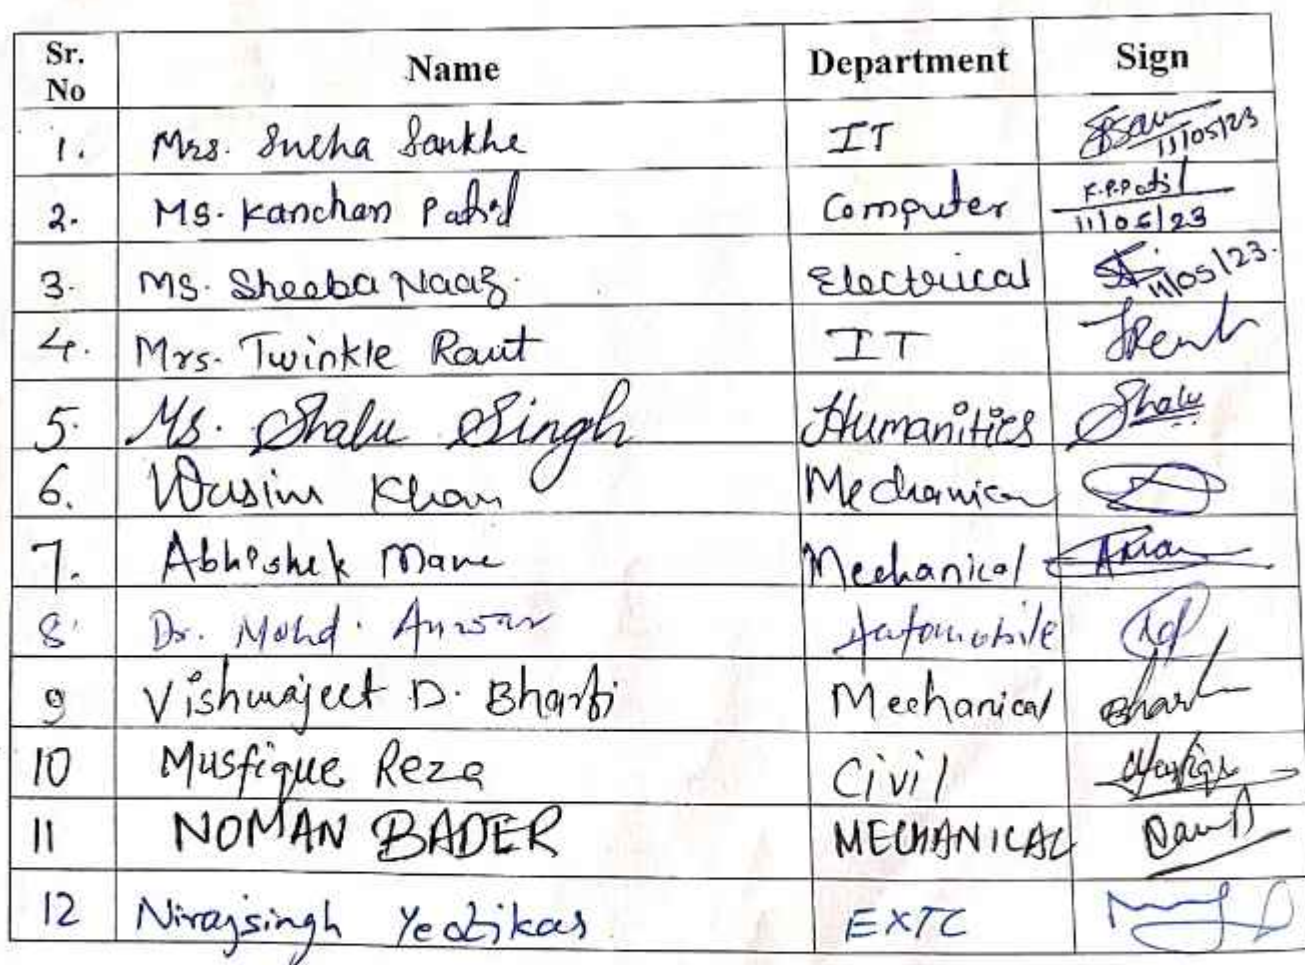 Sr. No Name Department Sign
1. Mrs. Sneha Sankhe IT 11/05/23
2. Ms. Kanchan Patil Computer K.P.Patil 11/05/23
3. Ms. Sheeba Naaz. Electrical 11/05/23.
4. Mrs. Twinkle Raut IT
5. Ms. Shalu Singh Humanities Shalu
6. Wasim Khan Mechanical
7. Abhishek Mane Mechanical
8. Dr. Mohd. Anwar Automobile
9 Vishwajeet D. Bharti Mechanical
10 Musfique Reza Civil
11 NOMAN BADER MECHANICAL
12 Nirajsingh EXTC